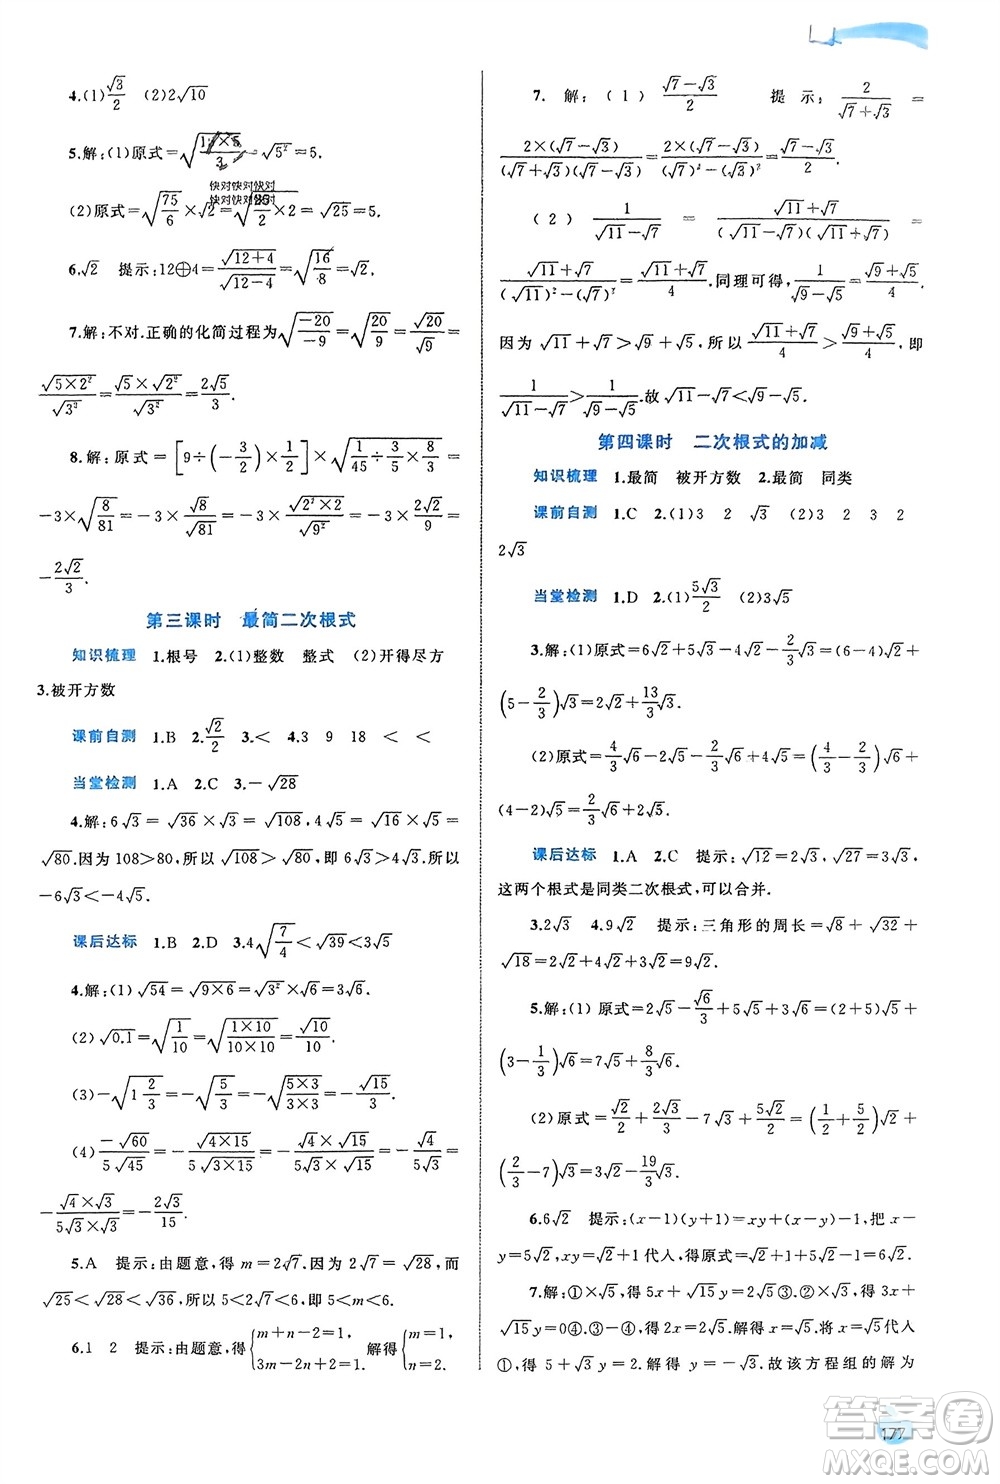 4.(1)√3/2 (2)2√10
5.解:(1)原式=√(…/3)=√5²=5.
快对快对快对
快对快对快对
(2)原式=√(75/6)×√2=√(25/2×2)=√25=5.
6.√2 提示:12⊕4=√(12+4)/√(12-4)=√(16/8)=√2.
7.解:不对.正确的化简过程为√(-20/-9)=√(20/9)=√20/√9=
√(5×2²)/√3²=√5×√2²/√3²=2√5/3.
8.解:原式=[9÷(-3/2)×1/2]×√(1/45÷3/5×8/3)=
-3×√(8/81)=-3×√8/√81=-3×√(2²×2)/√9²=-3×2√2/9=
-2√2/3.
第三课时 最简二次根式
知识梳理 1.根号 2.(1)整数 整式 (2)开得尽方
3.被开方数
课前自测 1.B 2.√2/2 3.< 4.3 9 18 < <
当堂检测 1.A 2.C 3.-√28
4.解:6√3=√36×√3=√108,4√5=√16×√5=
√80.因为108>80,所以√108>√80,即6√3>4√5.所以
-6√3<-4√5.
课后达标 1.B 2.D 3.4√(7/4)<√39<3√5
4.解:(1)√54=√(9×6)=√3²×√6=3√6.
(2)√0.1=√(1/10)=√(1×10/10×10)=√10/10.
(3)-√(1 2/3)=-√(5/3)=-√(5×3/3×3)=-√15/3.
(4)-√60/5√45=-√(4×15)/5√(3×15)=-√4×√15/5√3×√15=-√4/5√3=
-√4×√3/5√3×√3=-2√3/15.
5.A 提示:由题意,得m=2√7,所以m=√28.因为
√25<√28<√36,所以5<2√7<6,即5<m<6.
6.1 2 提示:由题意,得{m+n-2=1, 3m-2=1. 解得{m=1, n=2.
7.解:(1)(√7-√3)/2 提示:2/(√7+√3)=
2×(√7-√3)/(√7+√3)(√7-√3)=2×(√7-√3)/(√7)²-(√3)²=(√7-√3)/2.
(2)1/(√11-√7)=(√11+√7)/(√11-√7)(√11+√7)=
(√11+√7)/(√11)²-(√7)²=(√11+√7)/4.同理可得,1/(√9-√5)=(√9+√5)/4.
因为√11+√7>√9+√5,所以(√11+√7)/4>(√9+√5)/4,即
1/(√11-√7)>1/(√9-√5).故√11-√7<√9-√5.
第四课时 二次根式的加减
知识梳理 1.最简 被开方数 2.最简 同类
课前自测 1.C 2.(1)3 2 √3 (2)3 2 3 2
2√3
当堂检测 1.D 2.(1)5√3/2 (2)3√5
3.解:(1)原式=6√2+5√3-4√2-2/3√3=(6-4)√2+
(5-2/3)√3=2√2+13/3√3.
(2)原式=4/3√6-2√5-2/3√6+4√5=(4/3-2/3)√6+
(4-2)√5=2/3√6+2√5.
课后达标 1.A 2.C 提示:√12=2√3,√27=3√3,
这两个根式是同类二次根式,可以合并.
3.2√3 4.9√2 提示:三角形的周长=√8+√32+
√18=2√2+4√2+3√2=9√2.
5.解:(1)原式=2√5-√6/3+5√5+3√6=(2+5)√5+
(3-1/3)√6=7√5+8/3√6.
(2)原式=√2/2+2√3/3-7√3+5√2/2=(1/2+5/2)√2+
(2/3-7)√3=3√2-19/3√3.
6.6√2 提示:(x-1)(y+1)=xy+(x-y)-1,把x-
y=5√2,xy=√2+1代入,得原式=√2+1+5√2-1=6√2.
7.解:①×√5,得5x+√15y=5√5③.②×√3,得3x+
√15y=0④.③-④,得2x=5√5.解得x=5√5/2.将x代入
①,得5+√3y=0.解得y=-5√3/3.故该方程组的解为
177
答案圈
MXQE.COM